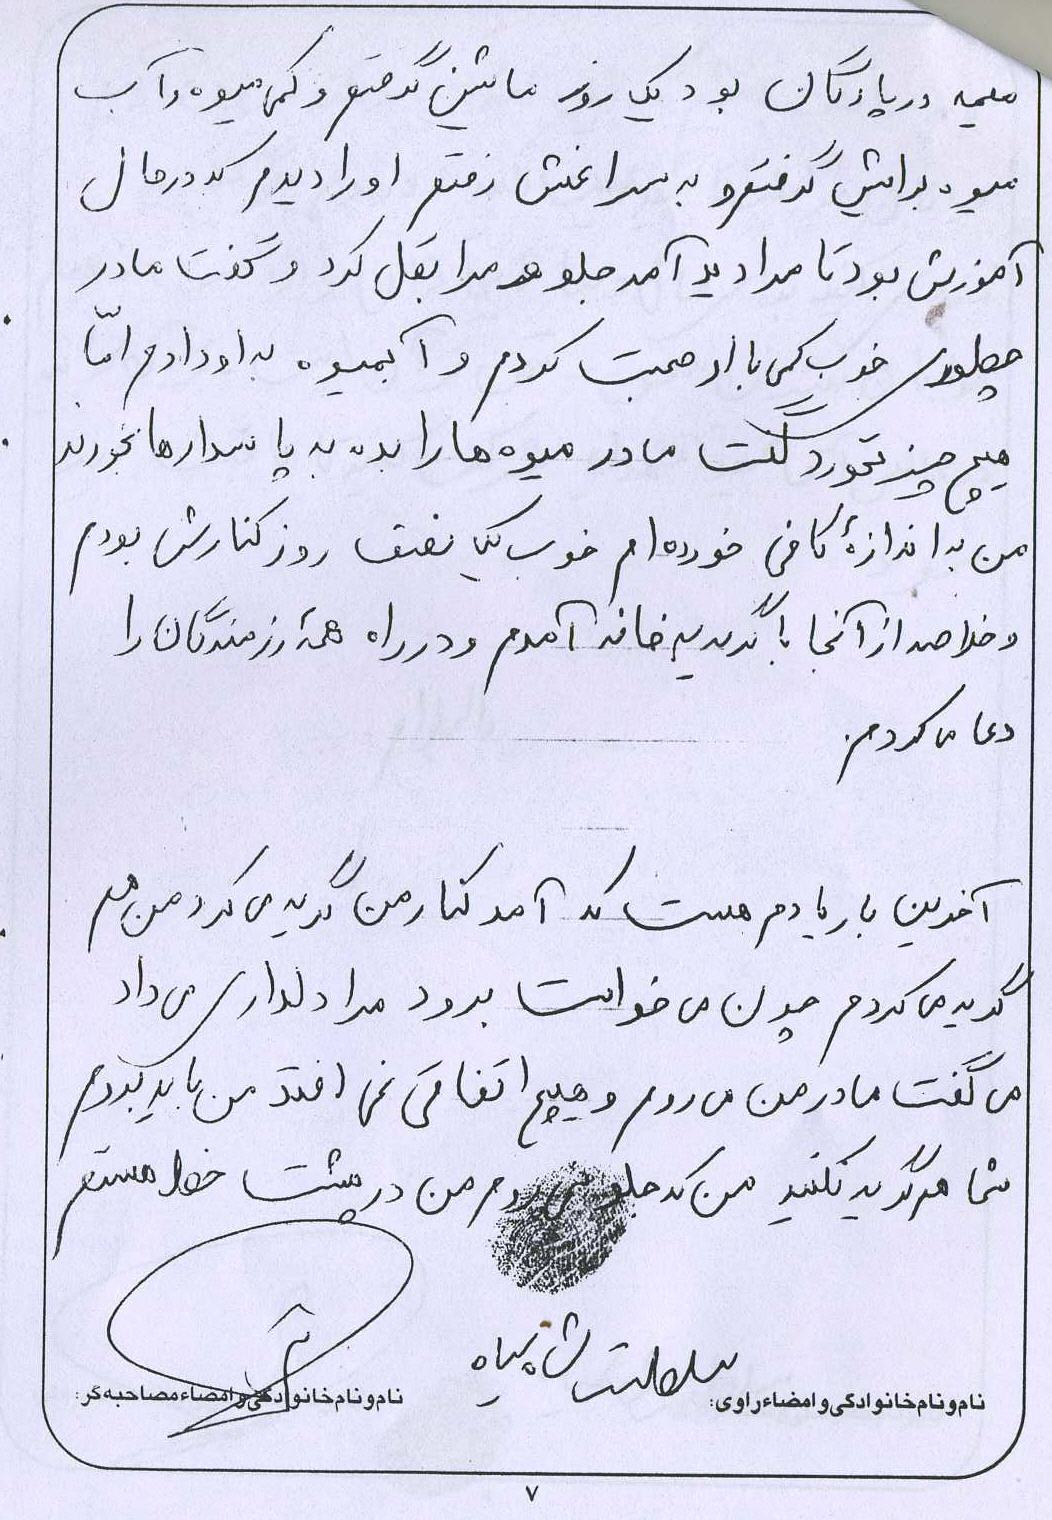 در پادگان بود یک روز ماشین گرفتم و کمی میوه و آب
میوه برایش گرفتم و به سراغش رفتم او را دیدم که در حال
آموزش بود تا مرا دید آمد جلو مرا بغل کرد و گفت مادر
چطوری خوب کمی با او صحبت کردم و آبمیوه به او دادم امّا
هیچ چیز نخورد گفت مادر میوه ها را بده به پاسدارها بخورند
من به اندازهٔ کافی خورده ام خوب یک نصف روز کنارش بودم
و خلاصه از آنجا با گریه به خانه آمدم و در راه همهٔ رزمندگان را
دعا می کردم.
آخرین بار یادم هست که آمد کنار من گریه می کرد من هم
گریه می کردم چون می خواست برود مرا دلداری می داد
می گفت مادر من می روم و هیچ اتفاقی نمی افتد من باید بروم
شما هم گریه نکنید من که جلو نمی روم من در پشت خط هستم
سلطنت شاه سیاه
نام و نام خانوادگی و امضاء راوی:
نام و نام خانوادگی و امضاء مصاحبه گر:
۷